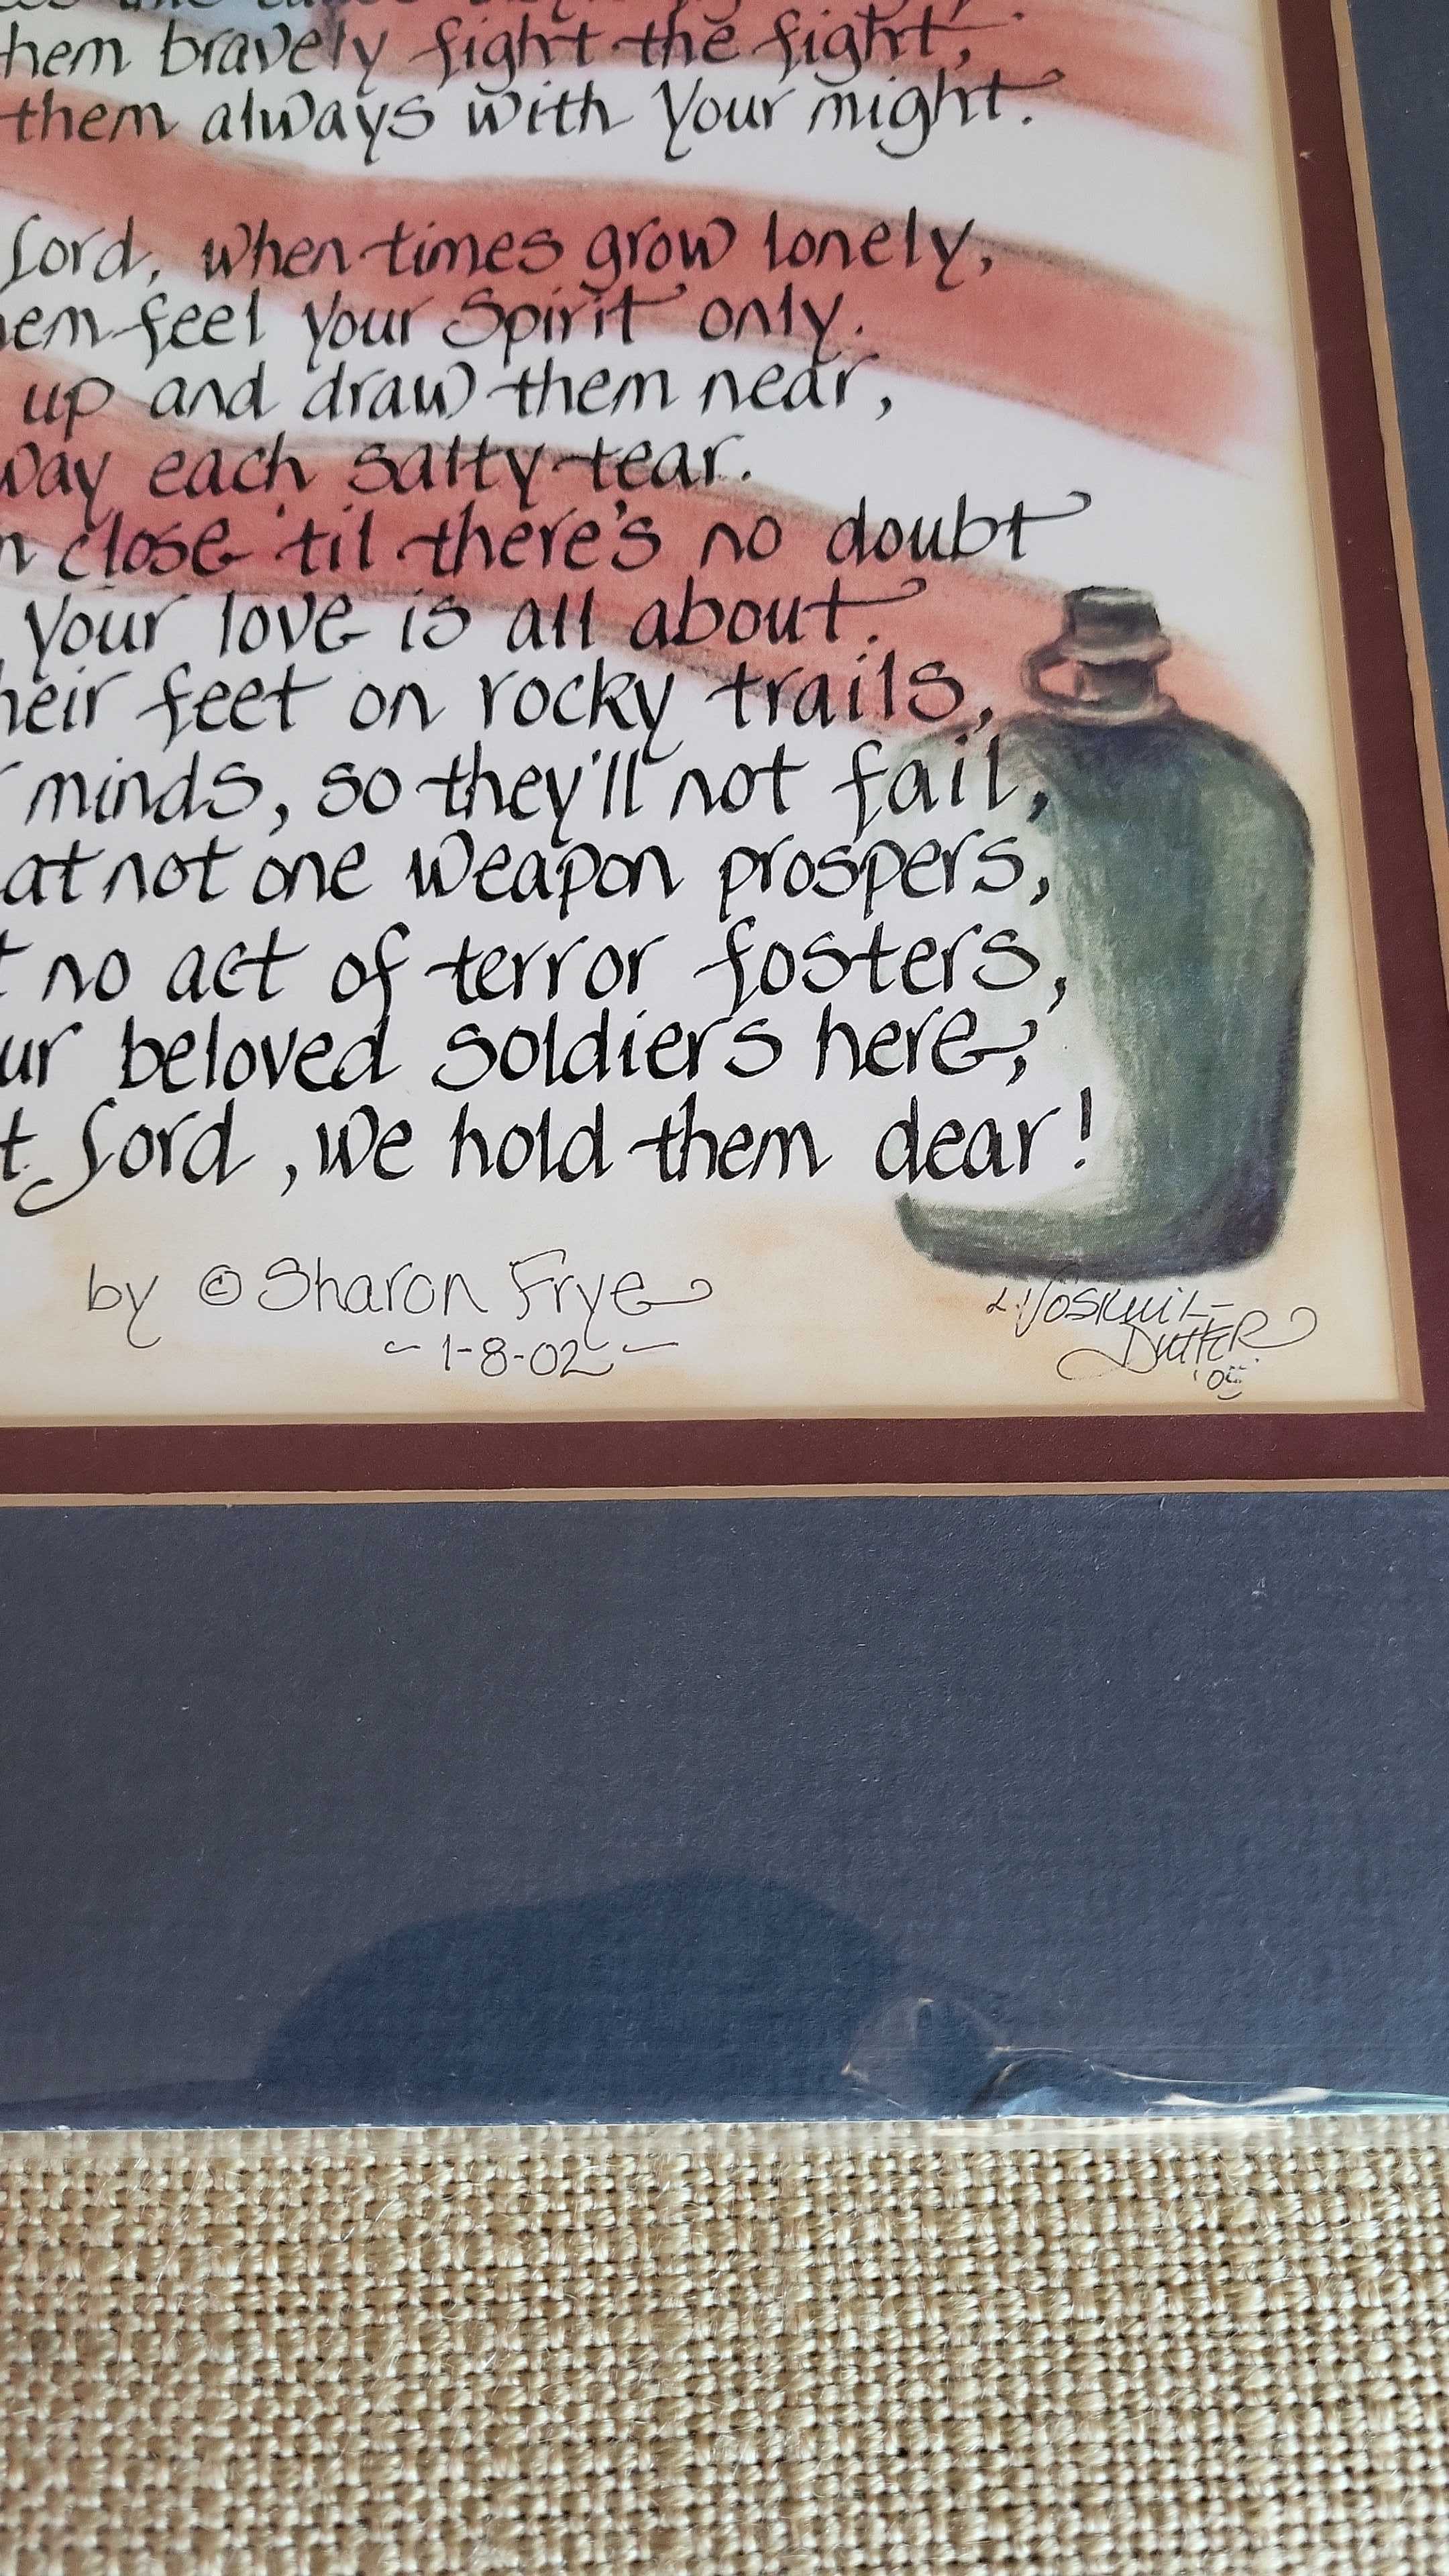 bravely fight the fight,
them always with Your might.
Lord, when times grow lonely,
feel Your Spirit only.
up and draw them near,
each salty tear.
close 'til there's no doubt
Your love is all about.
feet on rocky trails,
minds, so they'll not fail,
not one weapon prospers,
no act of terror fosters,
beloved soldiers here,
Lord, we hold them dear!
by © Sharon Frye
~ 1-8-02 ~